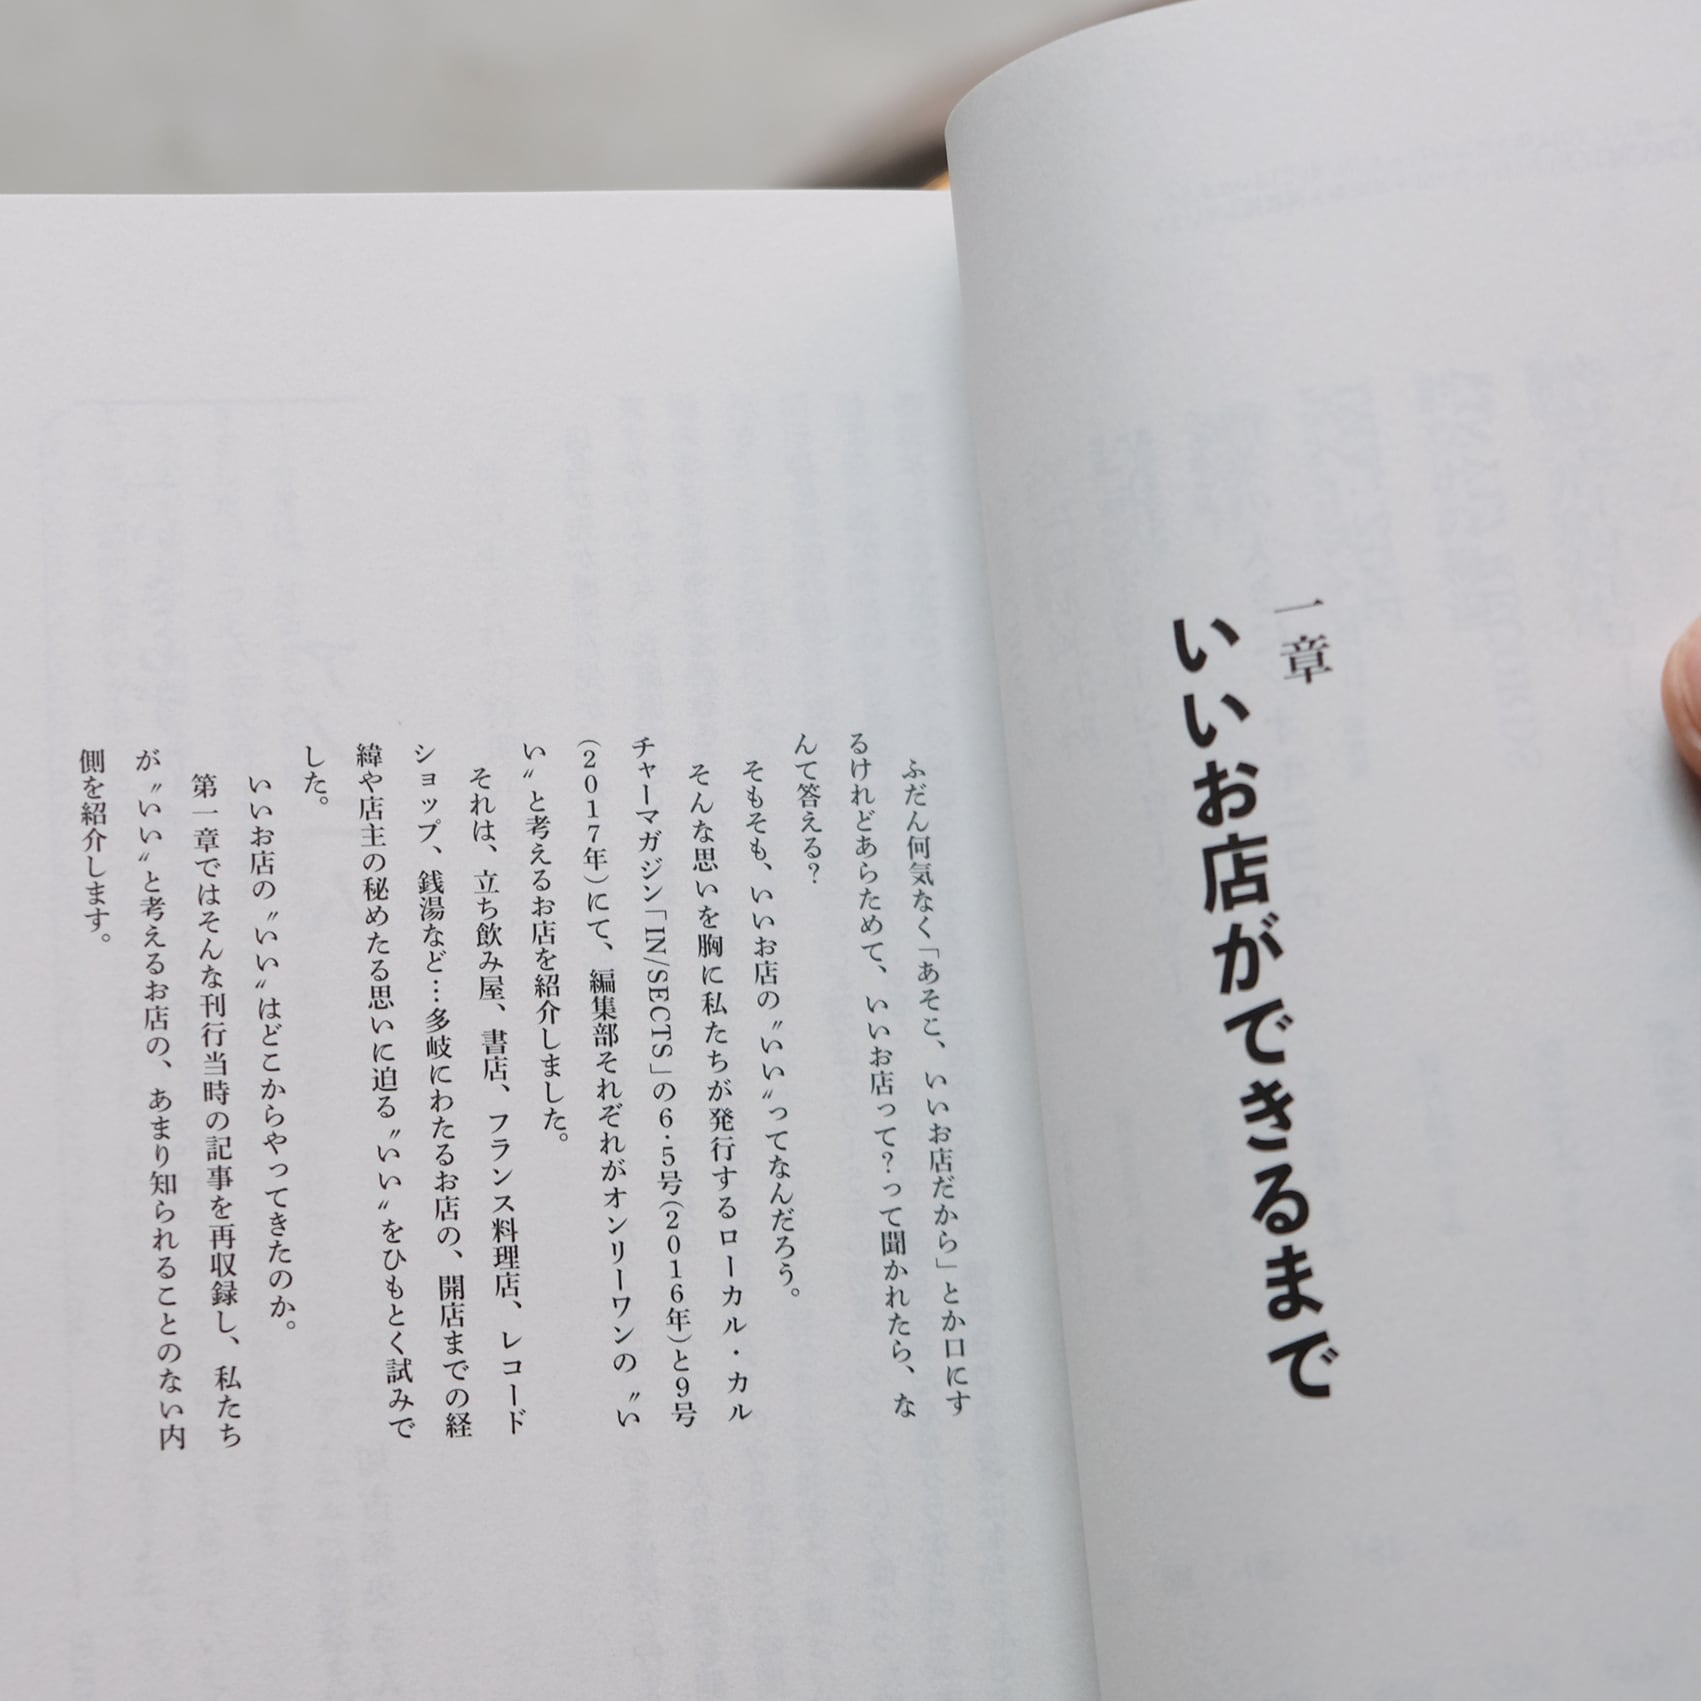 一章
いいお店ができるまで
ふだん何気なく「あそこ、いいお店だから」とか口にす
るけれどあらためて、いいお店って?って聞かれたら、な
んて答える?
そもそも、いいお店の〝いい〟ってなんだろう。
そんな思いを胸に私たちが発行するローカル・カル
チャーマガジン「IN/SECTS」の6.5号(2016年)と9号
(2017年)にて、編集部それぞれがオンリーワンの〝い
い〟と考えるお店を紹介しました。
それは、立ち飲み屋、書店、フランス料理店、レコード
ショップ、銭湯など…多岐にわたるお店の、開店までの経
緯や店主の秘めたる思いに迫る〝いい〟をひもとく試みで
した。
いいお店の〝いい〟はどこからやってきたのか。
第一章ではそんな刊行当時の記事を再収録し、私たち
が〝いい〟と考えるお店の、あまり知られることのない内
側を紹介します。